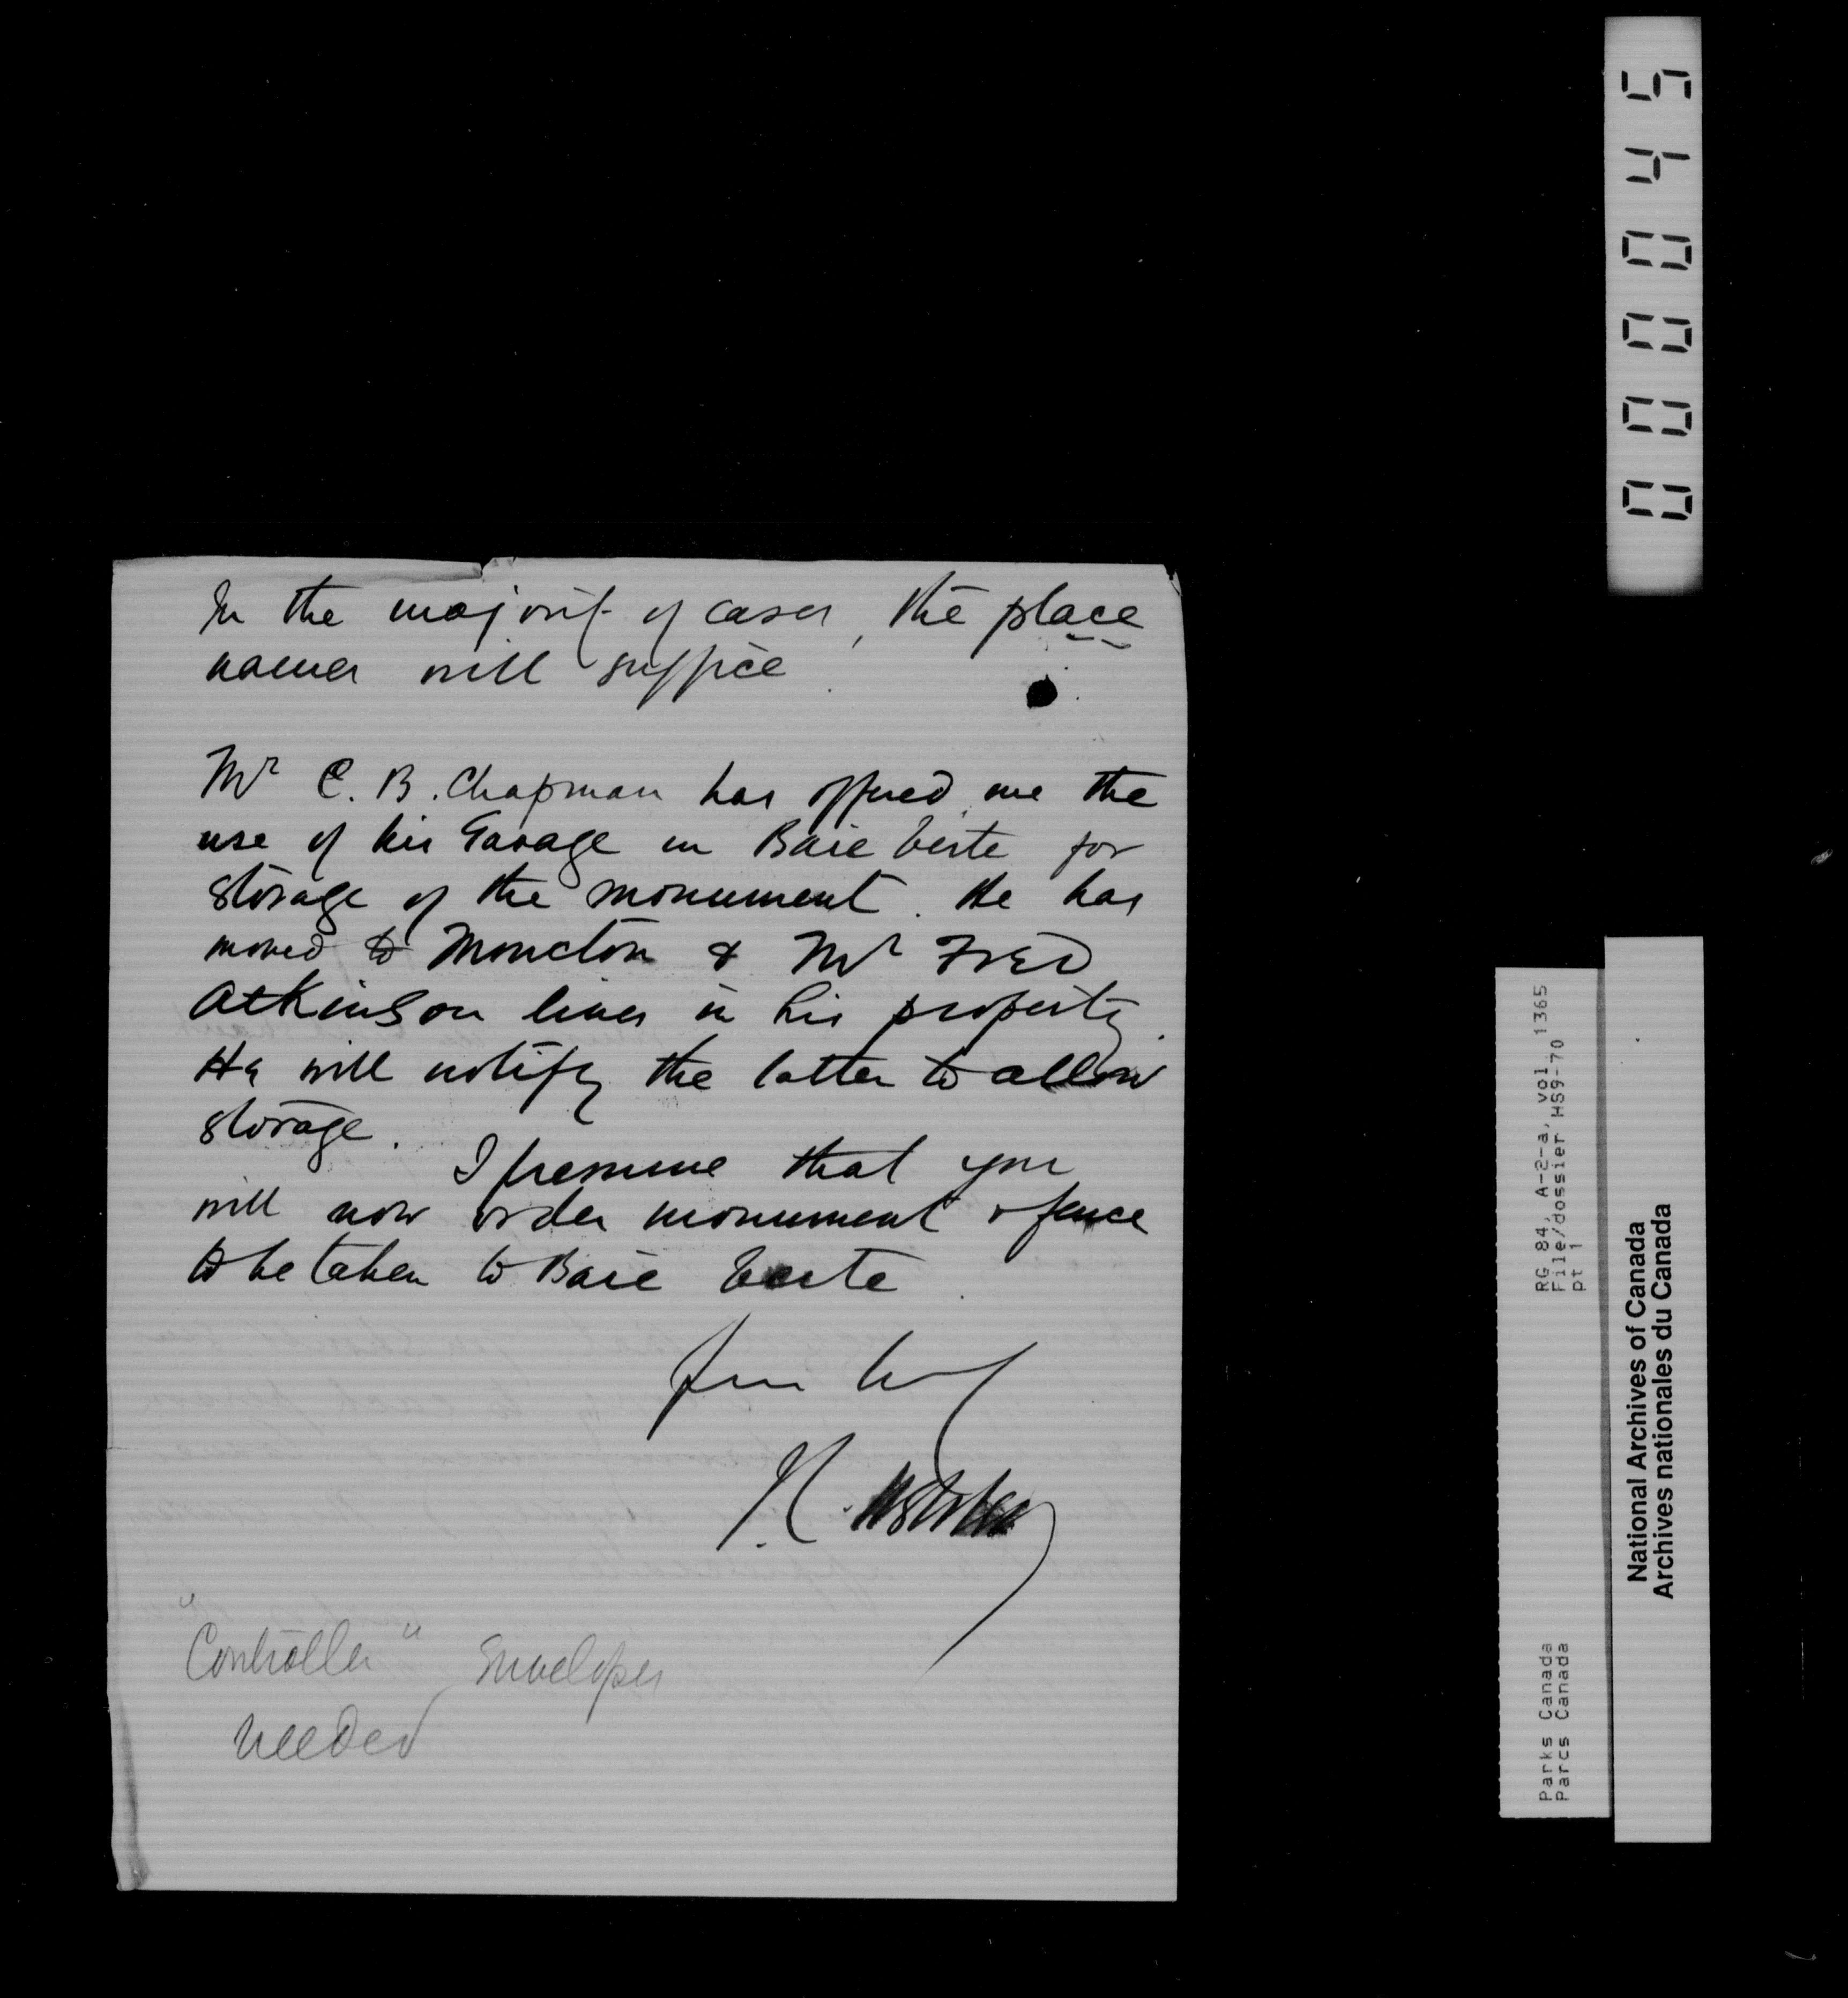 In the majority of cases, the place
names will suffice.
Mr C. B. Chapman has offered me the
use of his Garage in Baie Verte for
storage of the monument. He has
moved to Moncton & Mr FRED
Atkinson lives in his property.
He will notify the latter to allow
storage.
I presume that you
will now order monument & fence
to be taken to Baie Verte.
"Controller" Envelopes
needed
000045
RG 84, A-2-a, vol. 1365
File/dossier HS9-70
pt 1
Parks Canada
Parcs Canada
National Archives of Canada
Archives nationales du Canada